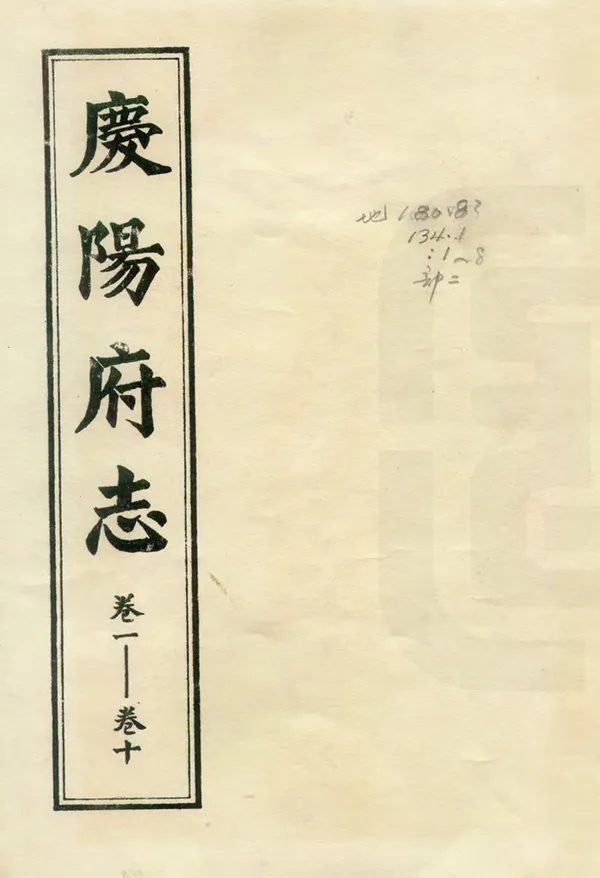 慶陽府志
卷一—卷十
地 180.83
134.1
:1~8
部二